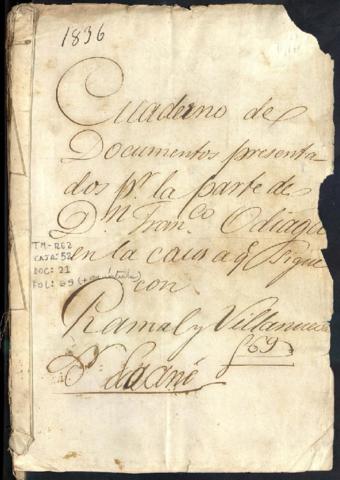 1836
Cuaderno de
Documentos presenta
dos pr. la parte de
Dn Franco. Odiaga
en la causa q. sigue
con
Ramal y Villanueva
f. 69
TM-RG2
CAJA: 52
DOC: 21
FOL: 69 (+ carátula)